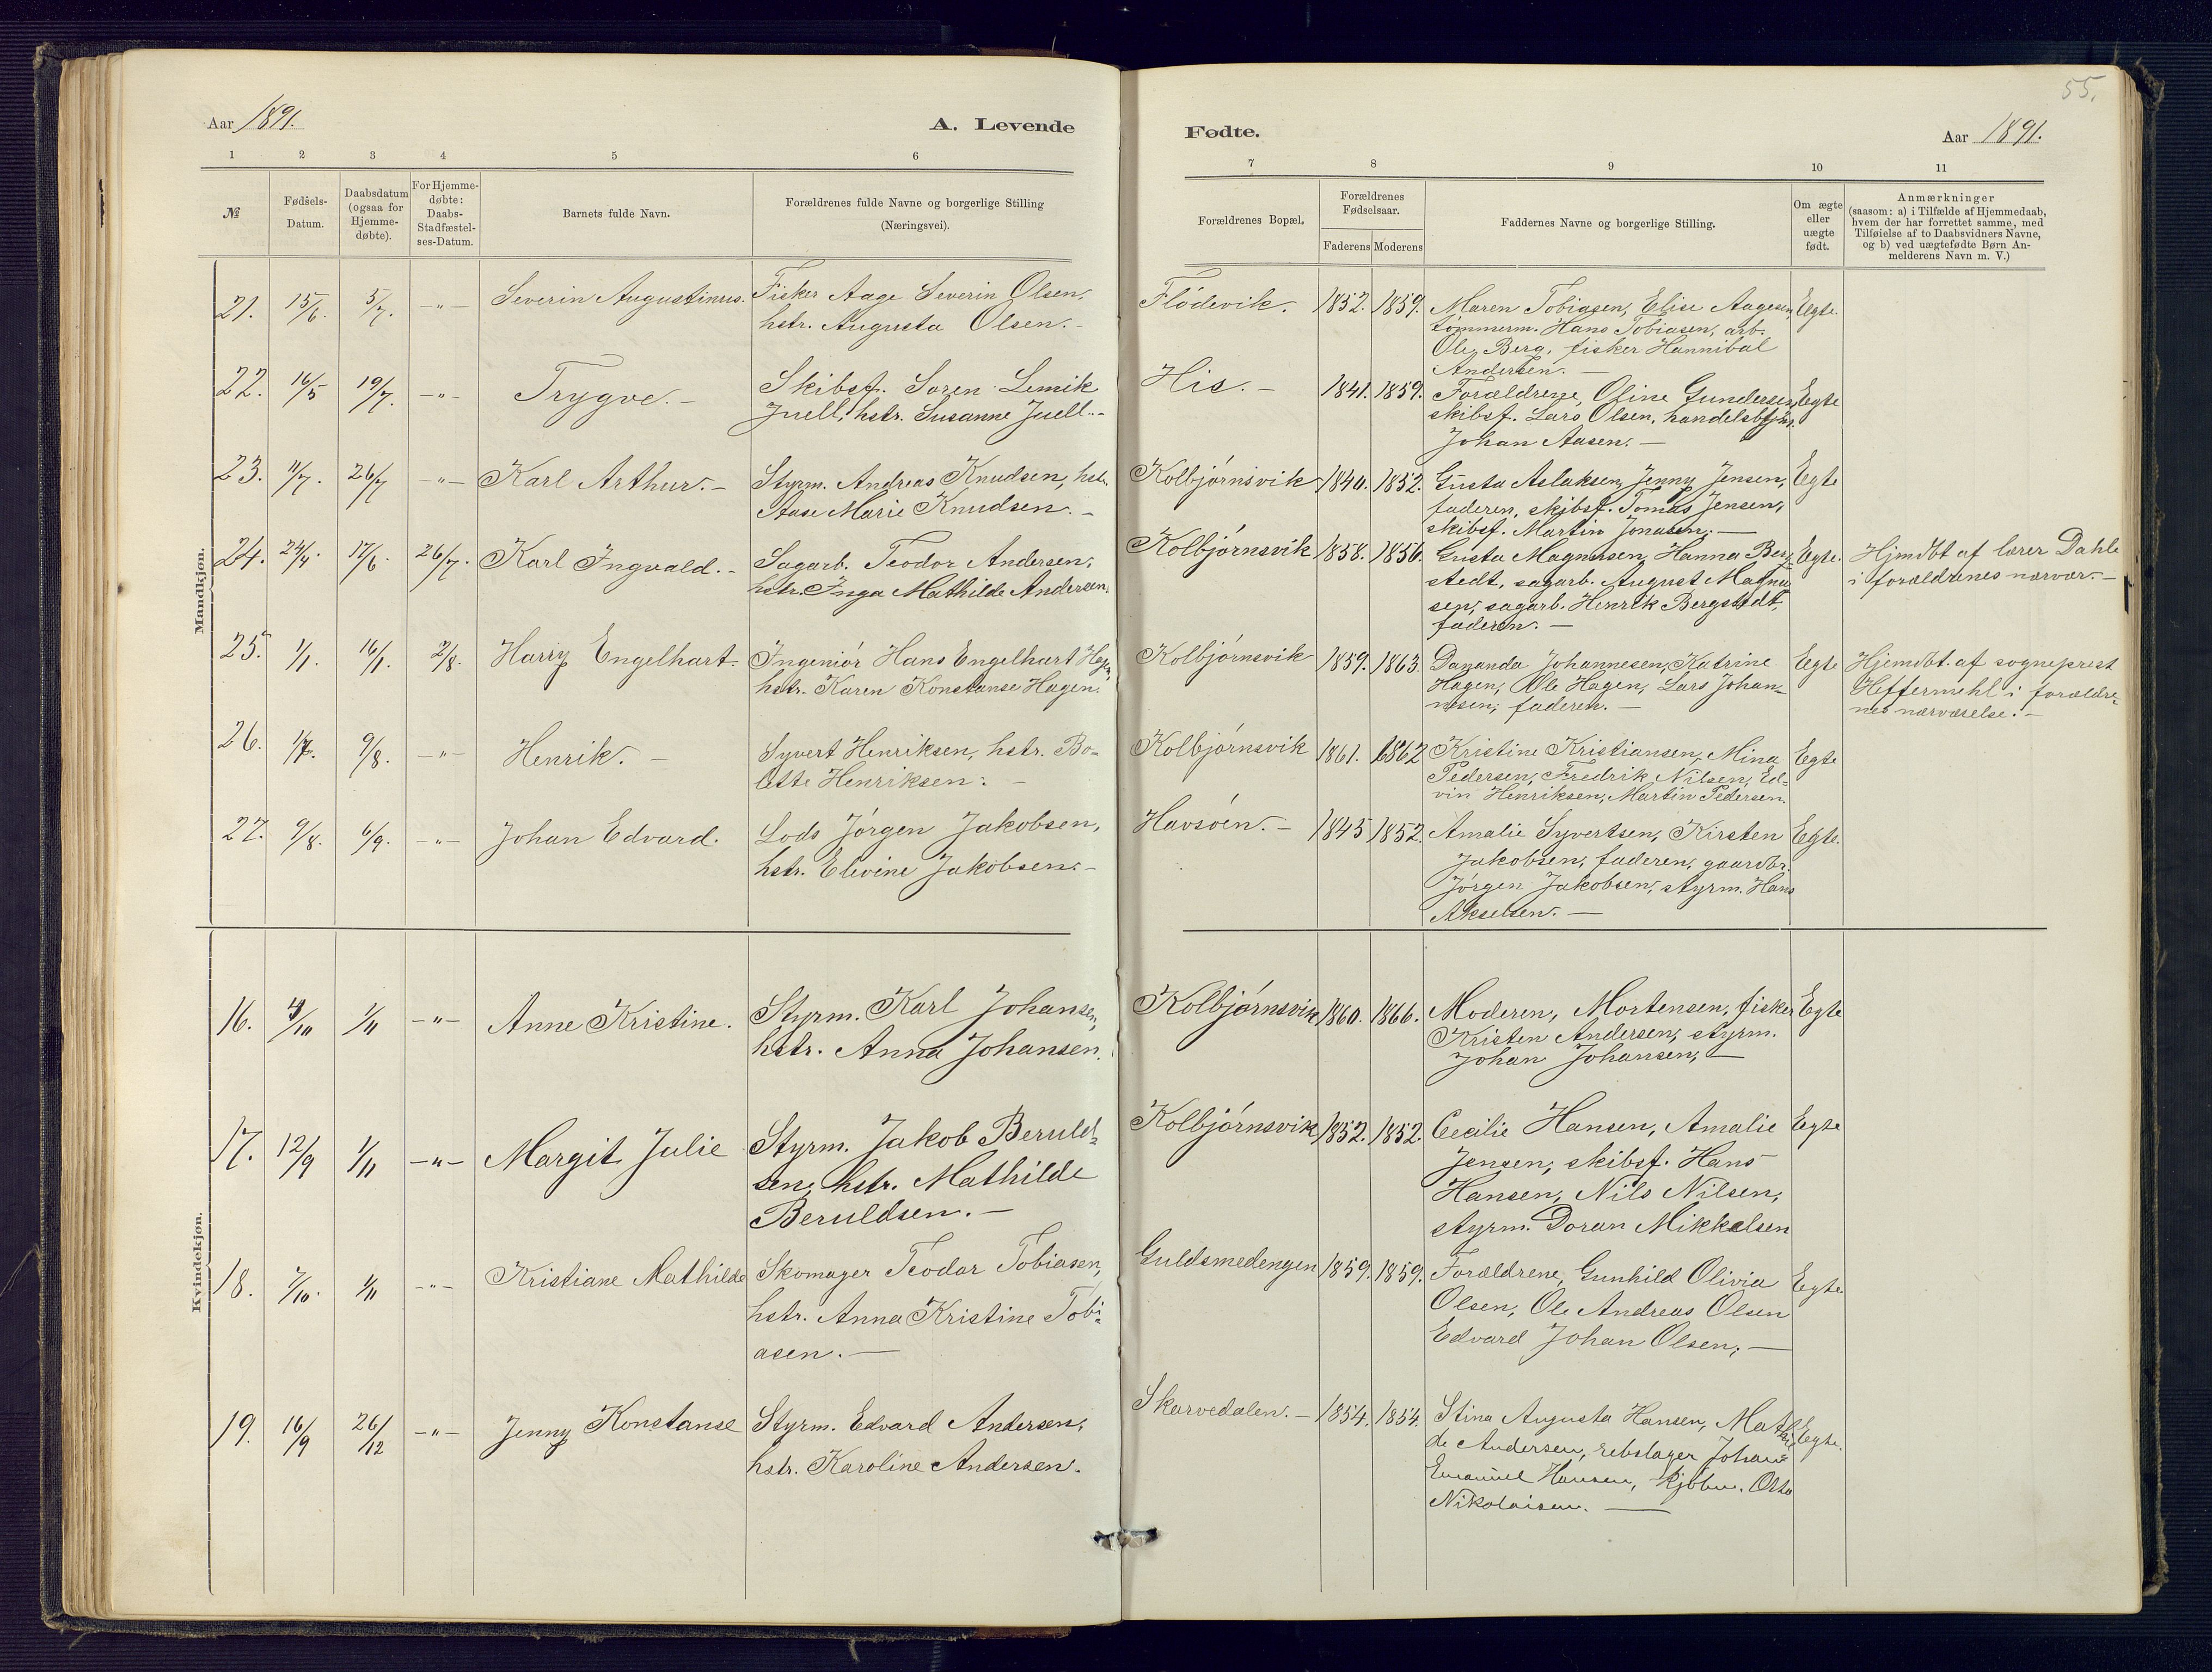 55.
Aar 1891.
A. Levende
Fødte.
Aar 1891.
1 2 3 4 5 6 7 8 9 10 11
№
Fødsels-
Datum.
Daabsdatum
(ogsaa for
Hjemme-
døbte).
For Hjemme-
døbte:
Daabs-
Stadfæstel-
ses-Datum.
Barnets fulde Navn.
Forældrenes fulde Navne og borgerlige Stilling
(Næringsvei).
Forældrenes Bopæl.
Forældrenes
Fødselsaar.
Faderens Moderens
Faddernes Navne og borgerlige Stilling.
Om ægte
eller
uægte
født.
Anmærkninger
(saasom: a) i Tilfælde af Hjemmedaab,
hvem der har forrettet samme, med
Tilføielse af to Daabsvidners Navne,
og b) ved uægtefødte Børn An-
melderens Navn m. V.)
Mandkjøn.
21. 15/6. 5/7. -"- Severin Augustinus.
Fisker Aage Severin Olsen,
hstr. Augusta Olsen.-
Flödevik. 1852. 1859.
Maren Tobiasen, Elise Aagesen,
tömmerm. Hans Tobiasen, arb.
Ole Berg, fisker Hannibal
Andersen.-
Egte.
22. 16/5 19/7. -"- Trygve.-
Skibsf. Soren Lemik
Juell, hstr. Susanne Juell.-
His.- 1841. 1859.
Forældrene, Oline Gundersen,
skibsf. Lars Olsen, handelsbtjn.
Johan Aasen.-
Egte
23. 11/7. 26/7 -"- Karl Arthur.-
Styrm. Andreas Knudsen, hstr.
Aase Marie Knudsen.-
Kolbjörnsvik 1840. 1852.
Gusta Aslaksen, Jenny Jensen,
faderen, skibsf. Tomas Jensen,
skibsf. Martin Jonasen.-
Egte
24. 24/4. 17/6. 26/7. Karl Ingvald.-
Sagarb. Teodor Andersen,
hstr. Inga Mathilde Andersen.
Kolbjörnsvik 1858. 1856.
Gusta Magnusen, Hanna Berg-
stedt, sagarb. August Magnu
sen, sagarb. Henrik Bergstedt,
faderen.-
Egte.
Hjmdbt af lærer Dahle
i forældrenes nærvær.-
25. 1/1. 16/1. 2/8. Harry Engelhart.
Ingeniör Hans Engelhart Hagen,
hstr. Karen Konstanse Hagen.
Kolbjörnsvik 1859. 1863.
Dananda Johannesen, Katrine
Hagen, Ole Hagen, Lars Johan-
nesen, faderen.-
Egte
Hjemdbt. af sogneprest
Heftermehl i forældre-
nes nærværelse.-
26. 1/7. 9/8. -"- Henrik.-
Syvert Henriksen, hstr. Bo-
lette Henriksen.-
Kolbjörnsvik 1861. 1862
Kristine Kristiansen, Mina
Pedersen, Fredrik Nilsen, Ed-
vin Henriksen, Martin Pedersen.
Egte
27. 9/8. 6/9. -"- Johan Edvard.
Lods Jörgen Jakobsen,
hstr. Elevine Jakobsen.-
Havsöen.- 1845 1852.
Amalie Syvertsen, Kirsten
Jakobsen, faderen, gaardbr.
Jörgen Jakobsen, styrm. Hans
Akselsen.-
Egte.
Kvindekjøn.
16. 4/10 1/11 -"- Anne Kristine.
Styrm. Karl Johansen,
hstr. Anna Johansen.
Kolbjörnsvik 1860. 1866.
Moderen, Mortensen, fisker
Kristen Andersen, styrm.
Johan Johansen,-
Egte
17. 12/9 1/11 -"- Margit Julie
Styrm. Jakob Beruld-
sen, hstr. Mathilde
Beruldsen.-
Kolbjörnsvik 1852. 1852.
Cecilie Hansen, Amalie
Jensen, skibsf. Hans
Hansen, Nils Nilsen,
styrm. Doran Mikkelsen
Egte
18. 7/10. 1/11 -"- Kristiane Mathilde
Skomager Teodor Tobiasen,
hstr. Anna Kristine Tobi-
asen.-
Guldsmedengen 1859. 1859.
Forældrene, Gunhild Olivia
Olsen, Ole Andreas Olsen
Edvard Johan Olsen,-
Egte.
19. 16/9 26/12 -"- Jenny Konstanse
Styrm. Edvard Andersen,
hstr. Karoline Andersen.
Skarvedalen.- 1854. 1854.
Stina Augusta Hansen, Mathil
de Andersen, rebslager Johan
Emanuel Hansen, kjöbm. Otto
Nikolaisen.-
Egte.